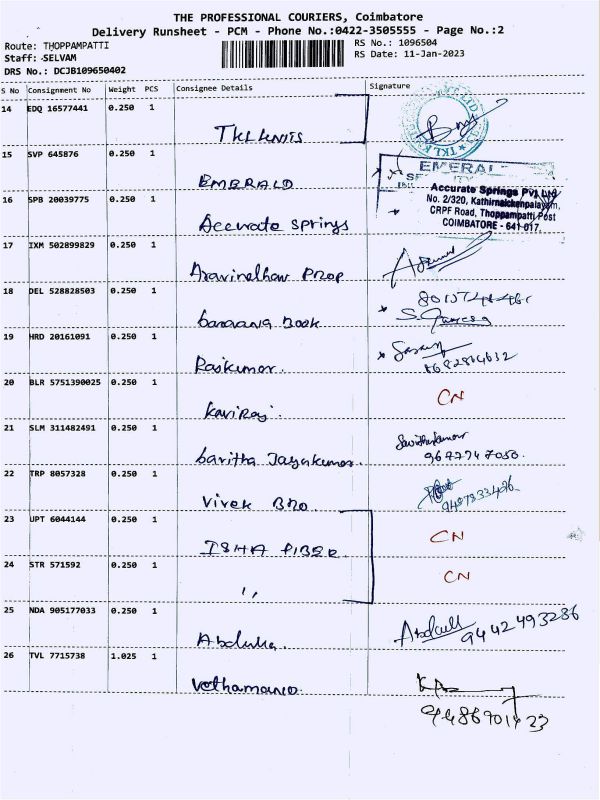 THE PROFESSIONAL COURIERS, Coimbatore
Delivery Runsheet - PCM - Phone No.:0422-3505555 - Page No.:2
Route: THOPPAMPATTI RS No.: 1096504
Staff: SELVAM RS Date: 11-Jan-2023
DRS No.: DCJB109650402
S No Consignment No Weight PCS Consignee Details Signature
14 EDQ 16577441 0.250 1
TKL KNITS
15 SVP 645876 0.250 1
EMERALD
EMERAL
Accurate Springs Pvt Ltd
No. 2/320, Kathirnaickenpalayam,
CRPF Road, Thoppampatti Post
COIMBATORE - 641 017.
16 SPB 20039775 0.250 1
Accurate springs
17 IXM 502899829 0.250 1
18 DEL 528828503 0.250 1
Book
19 HRD 20161091 0.250 1
Rajkumar.
20 BLR 5751390025 0.250 1
Kaviraj. CN
21 SLM 311482491 0.250 1
Savitha Jayakumar.
9677947050.
22 TRP 8057328 0.250 1
Vivek Bro.
23 UPT 6044144 0.250 1
ISHA FIBER CN
24 STR 571592 0.250 1
,, CN
25 NDA 905177033 0.250 1
9442493286
26 TVL 7715738 1.025 1